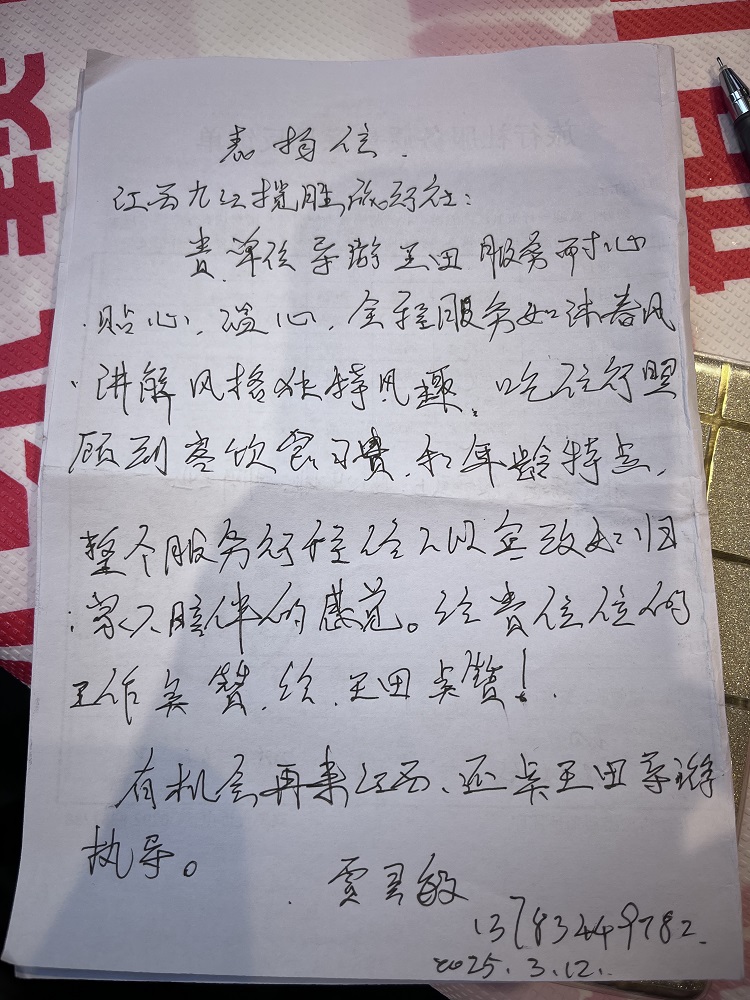 表扬信.
江西九江揽胜旅行社:
贵单位导游王田服务耐心
贴心,温心,全程服务如沐春风
讲解风格独特风趣,吃住行照
顾到客饮食习惯,和年龄特点,
整个服务行程给人以宾致如归
家人陪伴的感觉。给贵单位的
工作点赞,给王田点赞!
有机会再来江西、还点王田导游
执导。
贾
13783449782.
2025.3.12.